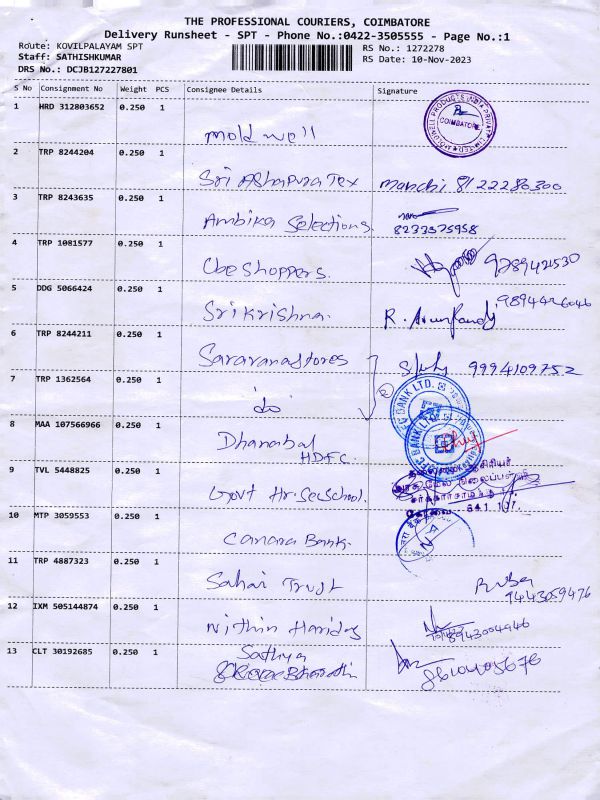 THE PROFESSIONAL COURIERS, COIMBATORE
Delivery Runsheet - SPT - Phone No.:0422-3505555 - Page No.:1
Route: KOVILPALAYAM SPT
RS No.: 1272278
Staff: SATHISHKUMAR
RS Date: 10-Nov-2023
DRS No.: DCJB127227801
S No Consignment No Weight PCS Consignee Details Signature
1 HRD 312803652 0.250 1 Mold well
COIMBATORE
2 TRP 8244204 0.250 1 Sri Ashapura Tex Manchi 8122280300
3 TRP 8243635 0.250 1 Ambika Selections. 8233575958
4 TRP 1081577 0.250 1 Cbe Shoppers.
5 DDG 5066424 0.250 1 Sri Krishna. R.
6 TRP 8244211 0.250 1 Saravana stores 9994109752
7 TRP 1362564 0.250 1 do
BANK LTD.
8 MAA 107566966 0.250 1 Dhanabal
HDFC
BANK LTD.
9 TVL 5448825 0.250 1 Govt Hr. Sec School.
641 107.
10 MTP 3059553 0.250 1 Canara Bank.
11 TRP 4887323 0.250 1 Sahai Trust
9443059476
12 IXM 505144874 0.250 1 Nithin Haridas
8943004946
13 CLT 30192685 0.250 1 Sathya
Bharathi